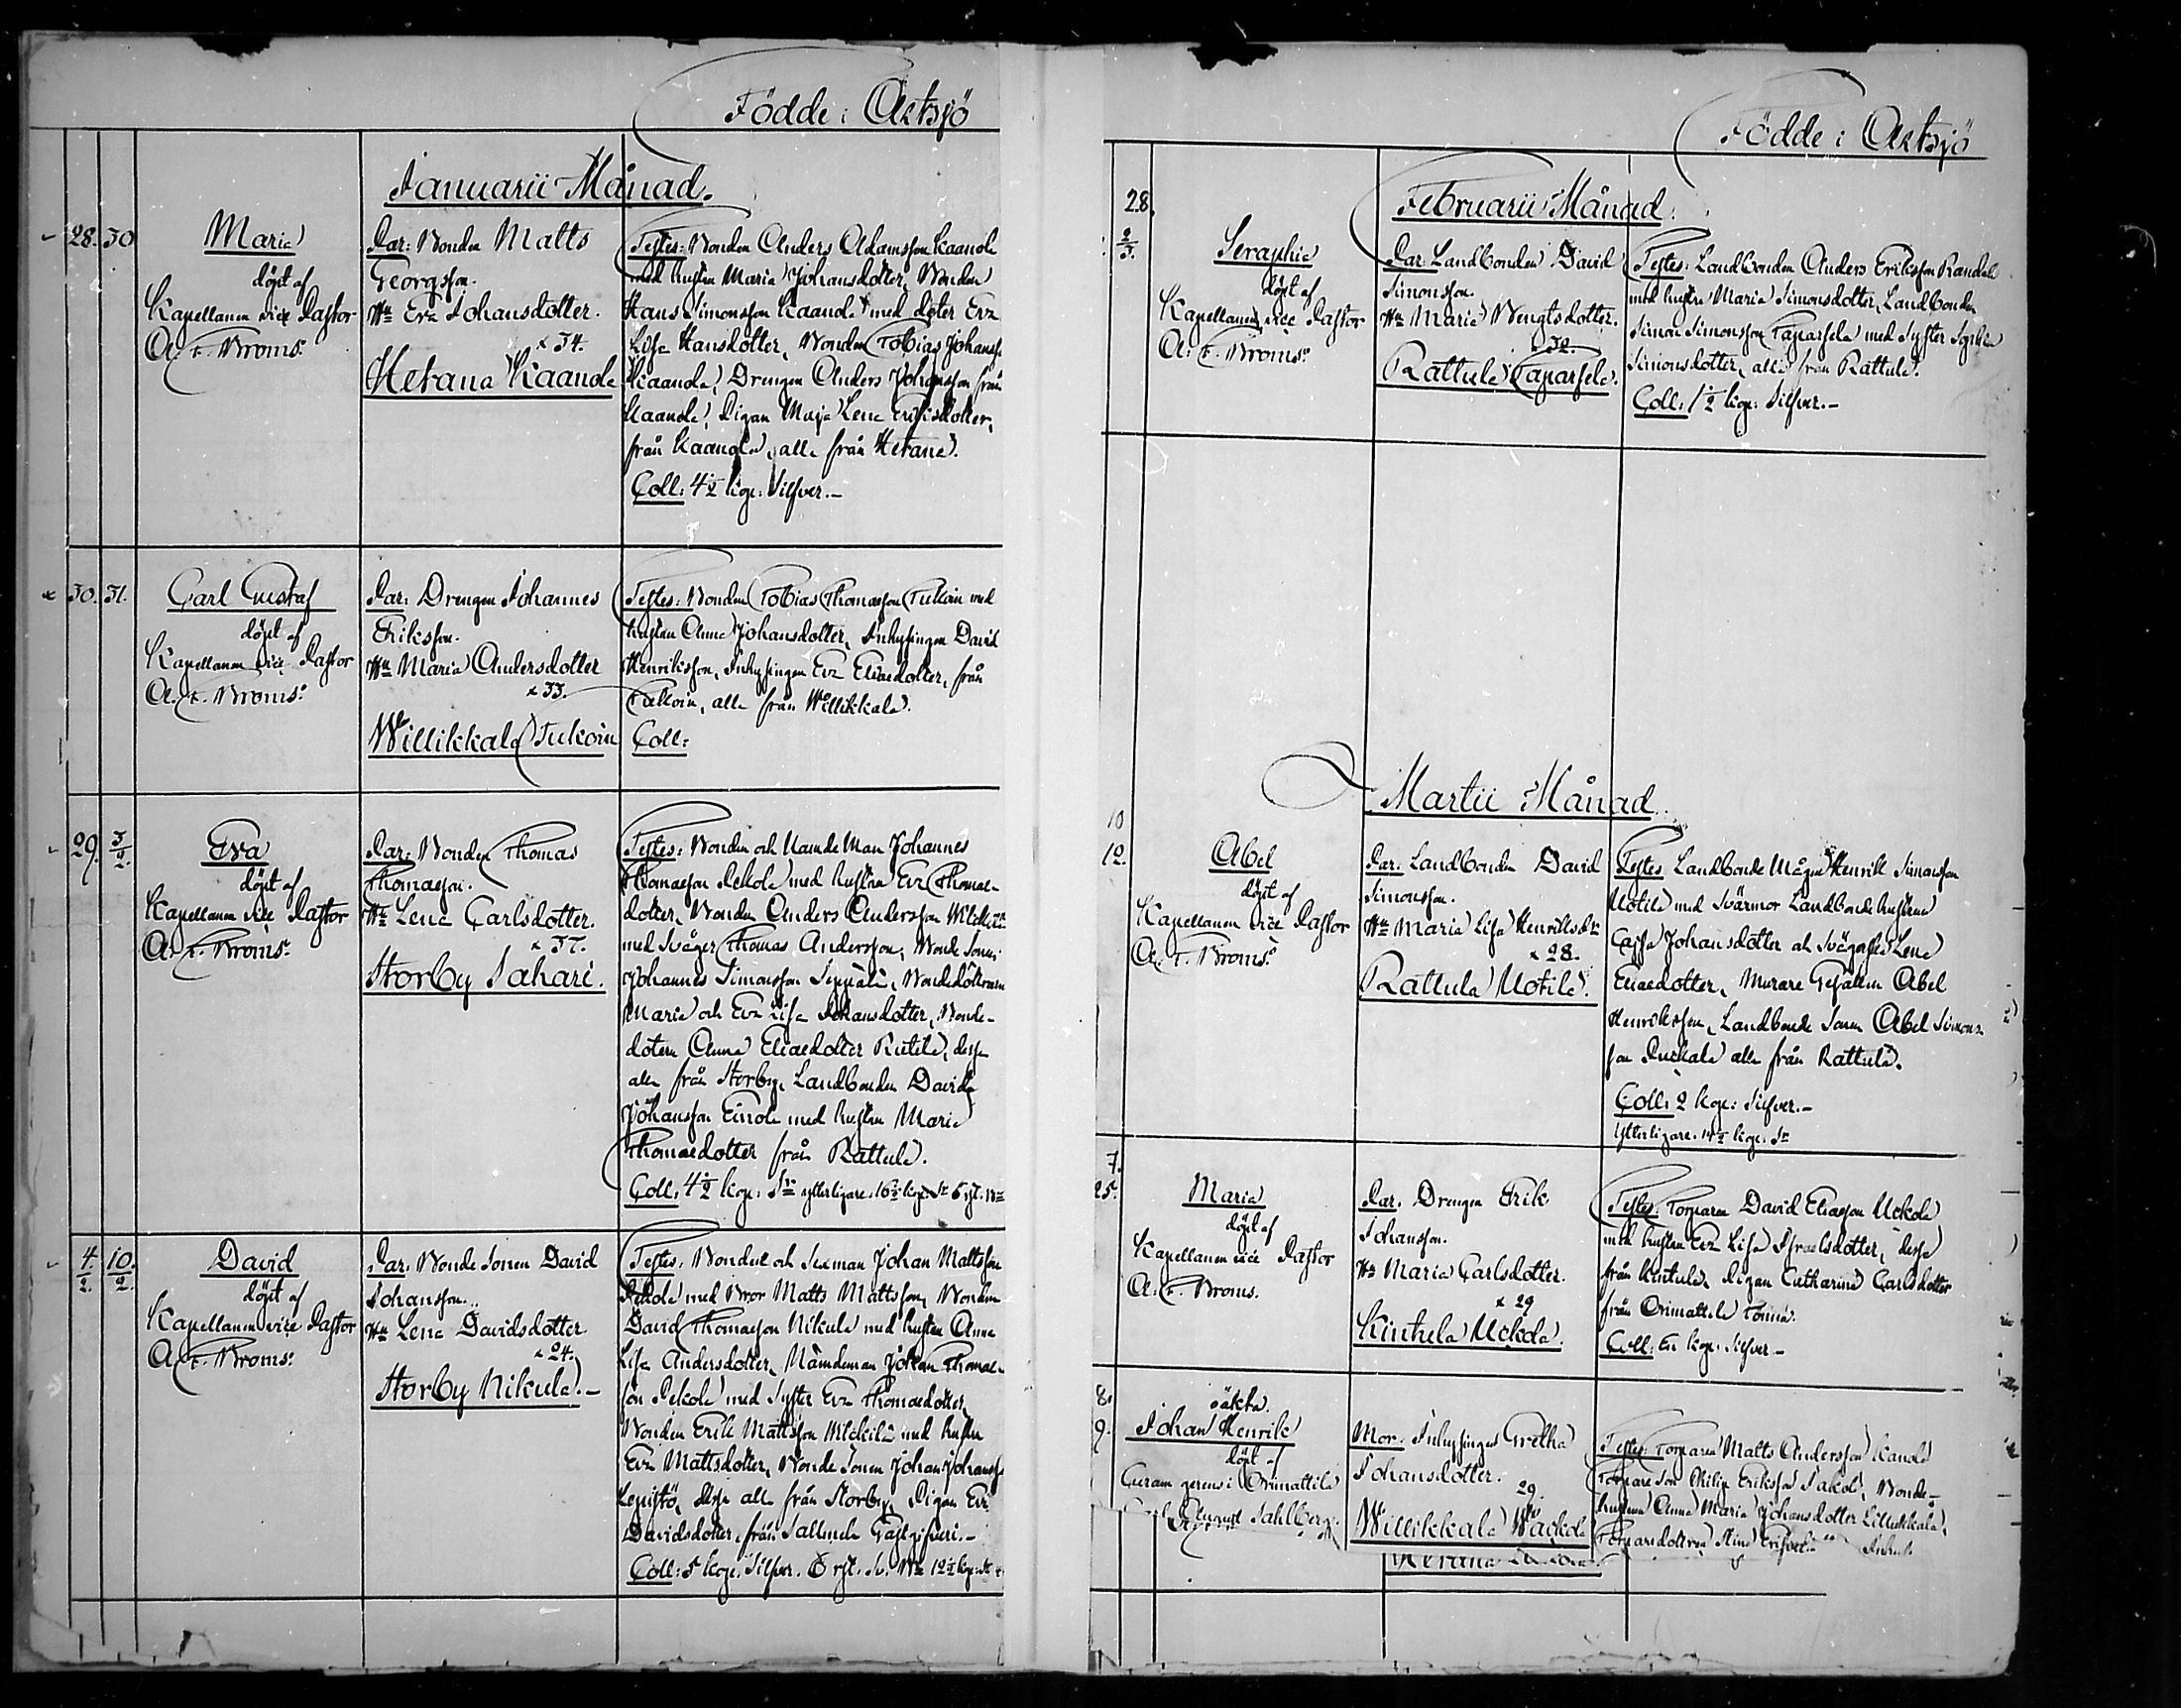 Födde i Artsjö
Januarii Månad.
28. 30
Maria
döpt af
Kapellanen vice Pastor
A. F. Broms.
Par: Bonden Matts
Georgsson.
Hu Eva Johansdotter.
x 34.
Hetana Kaanola
Testes: Bonden Anders Adamsson Kaanola
med hustru Maria Johansdotter, Bonden
Hans Simonsson Kaanola med doter Eva
Lisa Hansdotter, Bonden Tobias Johanss.
Kaanola, Drengen Anders Johansson från
Kaanola, Pigan Maja Lena Eriksdotter,
från Kaanola, alla från Hetana.
Coll: 4½ kop: Silfver.-
30. 31.
Carl Gustaf
döpt af
Kapellanen vice Pastor
A. F. Broms.
Par: Drengen Johannes
Eriksson.
Hu Maria Andersdotter
x 33.
Willikkala Tukoin
Testes: Bonden Tobias Thomasson Tukoin med
hustrun Anna Johansdotter, Inhysingen David
Henriksson, Inhysingen Eva Eliaedotter, från
Tukoin, alla från Willikkala.
Coll:
29. 3/2.
Eva
döpt af
Kapellanen vice Pastor
A. F. Broms.
Par: Bonden Thomas
Thomasson.
Hu Lena Carlsdotter.
x 37.
Storby Sahari.
Testes: Bonden och Nämde Man Johannes
Thomasson Pekola med hustru Eva Thomae-
dotter, Bonden Anders Andersson
med Svåger Thomas Andersson, Bonde Sonen
Johannes Simonsson Seppälä, Bondedöttrarna
Maria och Eva Lisa Johansdotter, Bonde-
dotern Anna Eliaedotter Rietila, dessa
alla från Storby, Landbonden David
Johansson Einola med hustru Maria
Thomaedotter från Rattula.
Coll: 4½ kop: Sr ytterligare 16½ kop Sr 5 rst.
4/2. 10/2.
David
döpt af
Kapellanen vice Pastor
A. F. Broms.
Par: Bonde Sonen David
Johansson.
Hu Lena Davidsdotter
x 24.
Storby Nikula.-
Testes: Bonden och Sexman Johan Mattsson
Pekola med Bror Matts Mattsson, Bonden
David Thomasson Nikula med hustru Anna
Lisa Andersdotter, Nämdeman Johan Thomas-
son Pekola med Syster Eva Thomaedotter,
Bonden Erik Mattsson Mickilä med hustru
Eva Mattsdotter, Bonde Sonen Johan Johansson
Lepistö, dessa alla från Storby, Pigan Eva
Davidsdotter från Sallinda Gästgifveri.-
Coll: 5 kop. Silfver. 6 rst. 12½ kop: Sr
Födde i Artsjö
Februarii Månad.
28.
2/3.
Seraphia
döpt af
Kapellanen vice Pastor
A. F. Broms.
Par: Landbonden David
Simonsson.
Hu Maria Bengtsdotter.
x 32.
Rattula Taparsela.
Testes: Landbonden Anders Eriksson Randel
med hustru Maria Simonsdotter, Landbonden
Simon Simonsson Taparsela med Syster Sophia
Simonsdotter, alla från Rattula.
Coll: 1½ kop: Silfver.-
Martii Månad
10
12.
Abel
döpt af
Kapellanen vice Pastor
A. F. Broms.
Par: Landbonden David
Simonsson.
Hu Maria Lisa Henriksdr
x 28.
Rattula Uotila.
Testes Landbonde Mågen Henrik Simonsson
Uotila med Svärmor Landbonde hustrun
Cajsa Johansdotter Lena
Eliaedotter, Murare Gesällen Abel
Henriksson, Landbonde Sonen Abel Simons-
son alla från Rattula.
Coll: 2 kop: Silfver.-
Ytterligare 14½ kop. Sr
7.
25.
Maria
döpt af
Kapellanen vice Pastor
A. F. Broms.
Par: Drengen Erik
Johansson.
Hu Maria Carlsdotter.
x 29
Kintula Uckola.
Testes: Torparen David Eliasson Uckola
med hustru Eva Lisa Israelsdotter, dessa
från Kintula, Pigan Catharina Carlsdotter
från Orimattila
Coll: En kop: Silfver-
8.
9.
oäkta
Johan Henrik
döpt af
Curam gerens i Orimattila
August Sahlberg
Mor: Inhysinges Gretha
Johansdotter.
29.
Willikkala Wäckola
Testes: Torparen Matts Andersson Kanola
Torpare Son Philip Eriksson Sakola, Bonde-
hustrun Anna Maria Johansdotter Lillukkala,
Torparedottren Stina